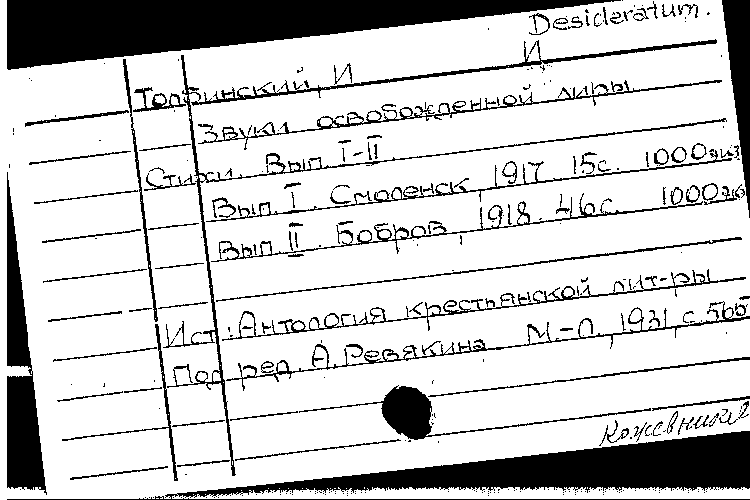 Desideratum.
И
Толбинский, И
Звуки освобожденной лиры
Стихи. Вып. I-II.
Вып. I. Смоленск, 1917. 15с. 1000экз
Вып. II. Бобров, 1918. 46с. 1000экз
Ист.: Антология крестьянской лит-ры
Под ред. А. Ревякина. М.-Л., 1931, с. 566